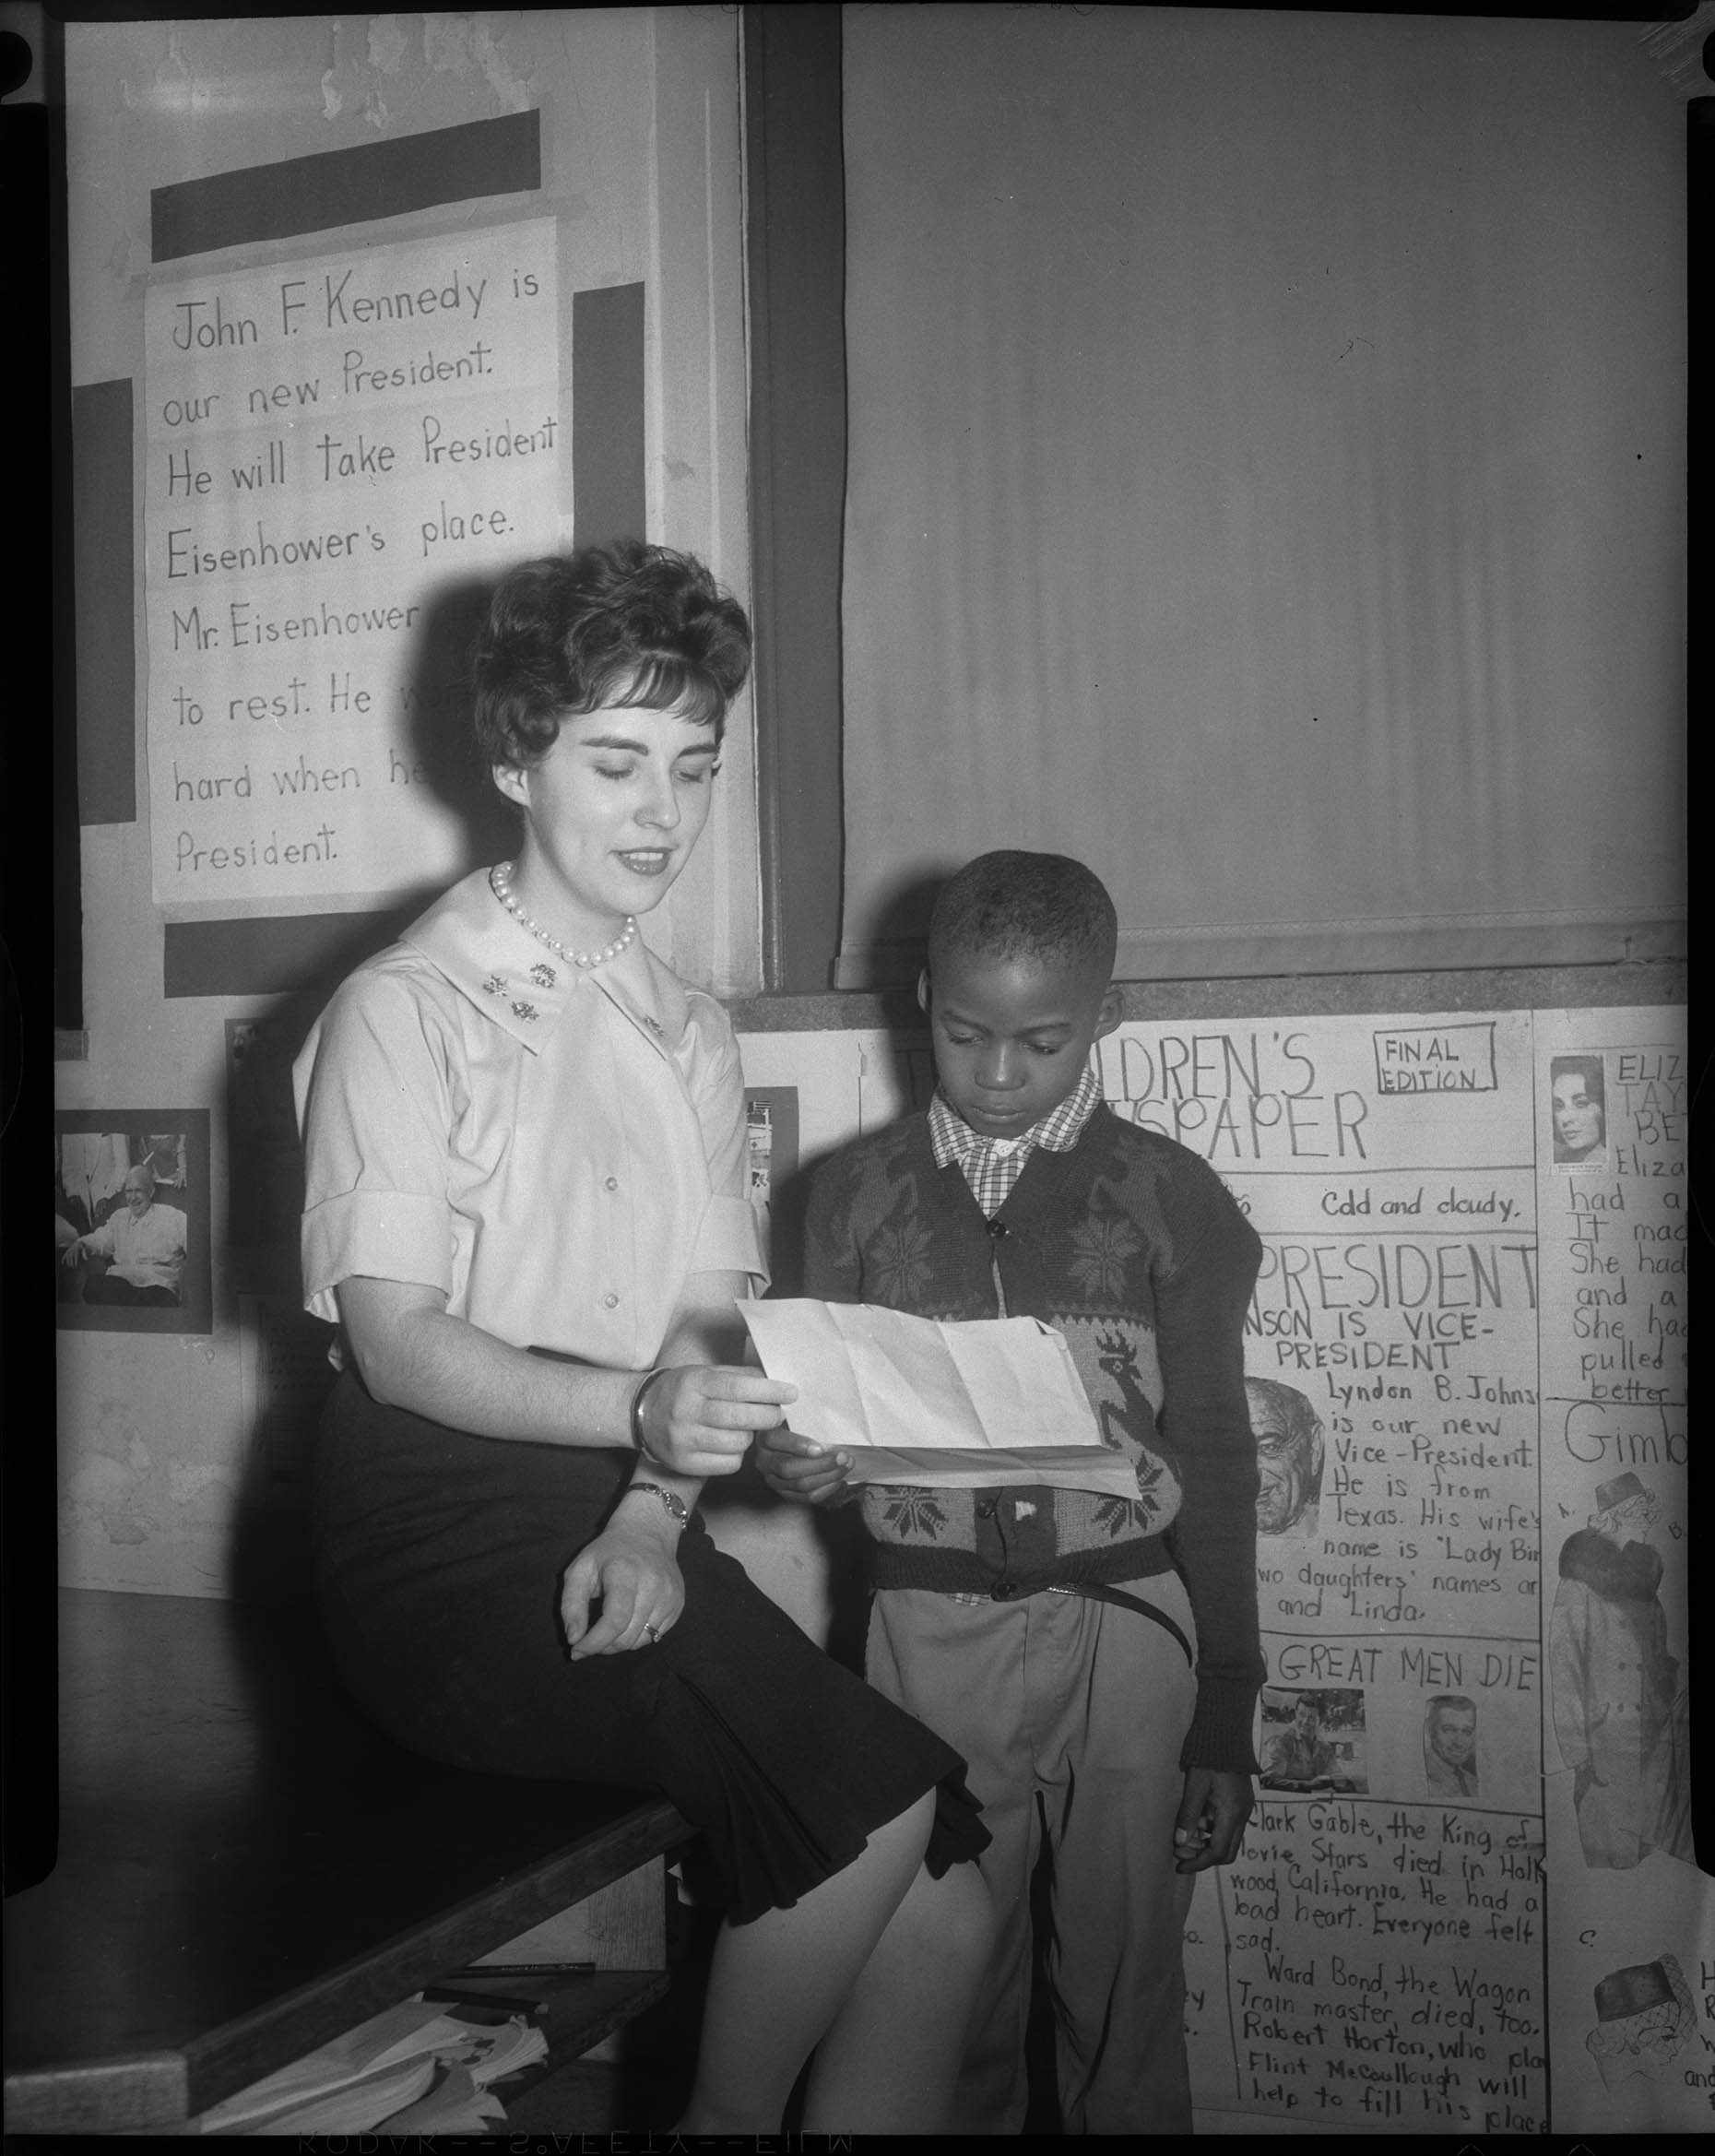 John F. Kennedy is
our new President.
He will take President
Eisenhower's place.
Mr. Eisenhower
to rest. He
hard when he
President.
LDREN'S
SPAPER
FINAL
EDITION
Cold and cloudy.
PRESIDENT
NSON IS VICE-
PRESIDENT
Lyndon B. Johns
is our new
Vice-President.
He is from
Texas. His wife's
name is "Lady Bir
wo daughters' names ar
and Linda.
GREAT MEN DIE
Clark Gable, the King of
Movie Stars died in Holly
wood, California. He had a
bad heart. Everyone felt
sad.
Ward Bond, the Wagon
Train master, died, too.
Robert Horton, who pla
Flint McCoullough will
help to fill his place
ELIZ
TAY
BE
Eliza
had a
It mad
She had
and a
She had
pulled
better
Gimb
A.
B
C.
and
KODAK--S°AFETY--FILM